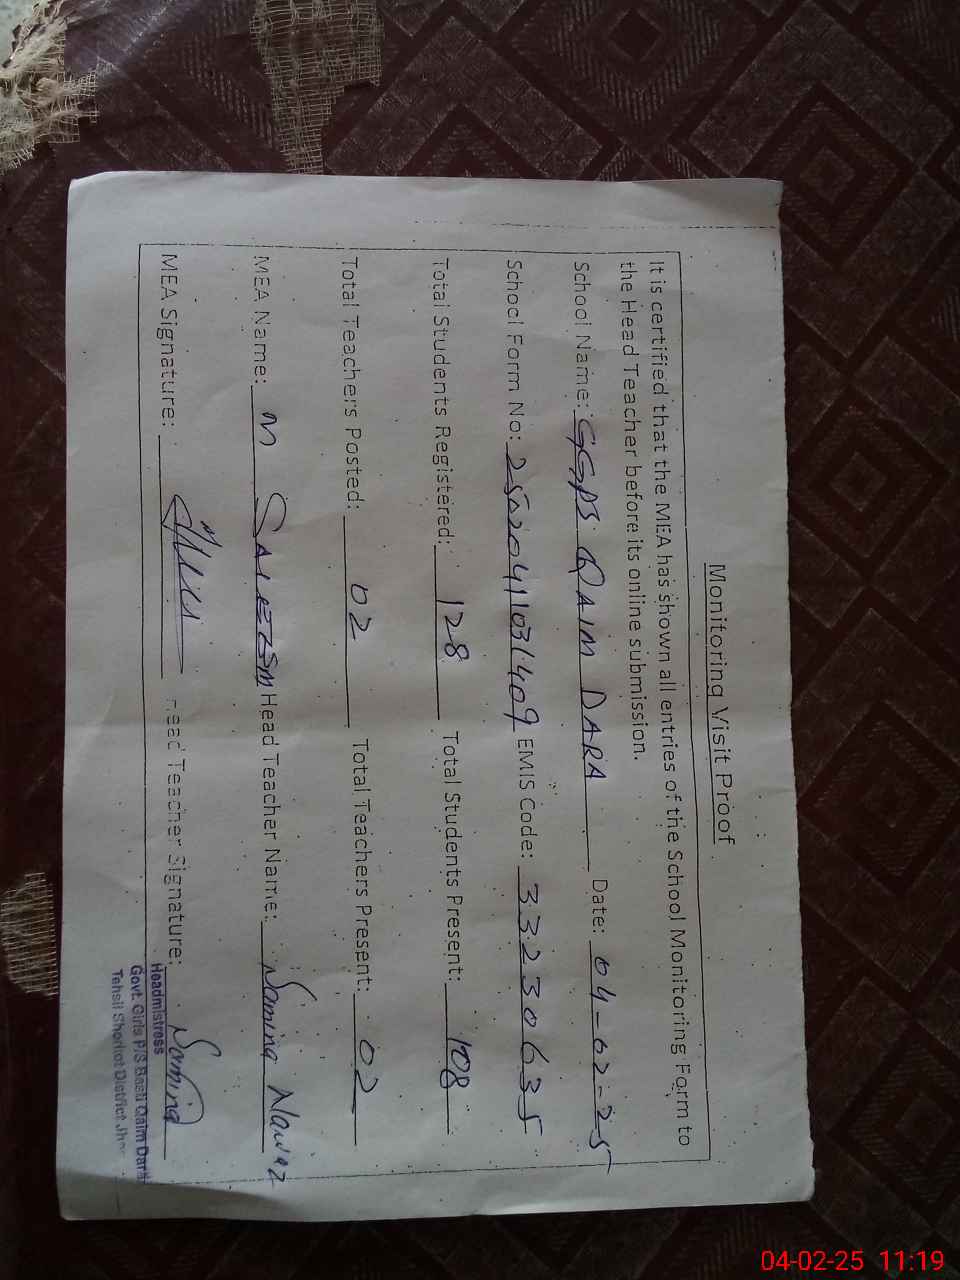 Monitoring Visit Proof
It is certified that the MEA has shown all entries of the School Monitoring Form to
the Head Teacher before its online submission.
School Name: GGPS QAIM DARA Date: 04-02-25
School Form No: 2502041031409 EMIS Code: 33230635
Total Students Registered: 128 Total Students Present: 108
Total Teachers Posted: 02 Total Teachers Present: 02
MEA Name: M SALEEM Head Teacher Name: Samina Nawaz
MEA Signature: Head Teacher Signature: Samina
Headmistress
Govt. Girls P/S Basti Qaim Dara
Tehsil Shorkot District
04-02-25 11:19